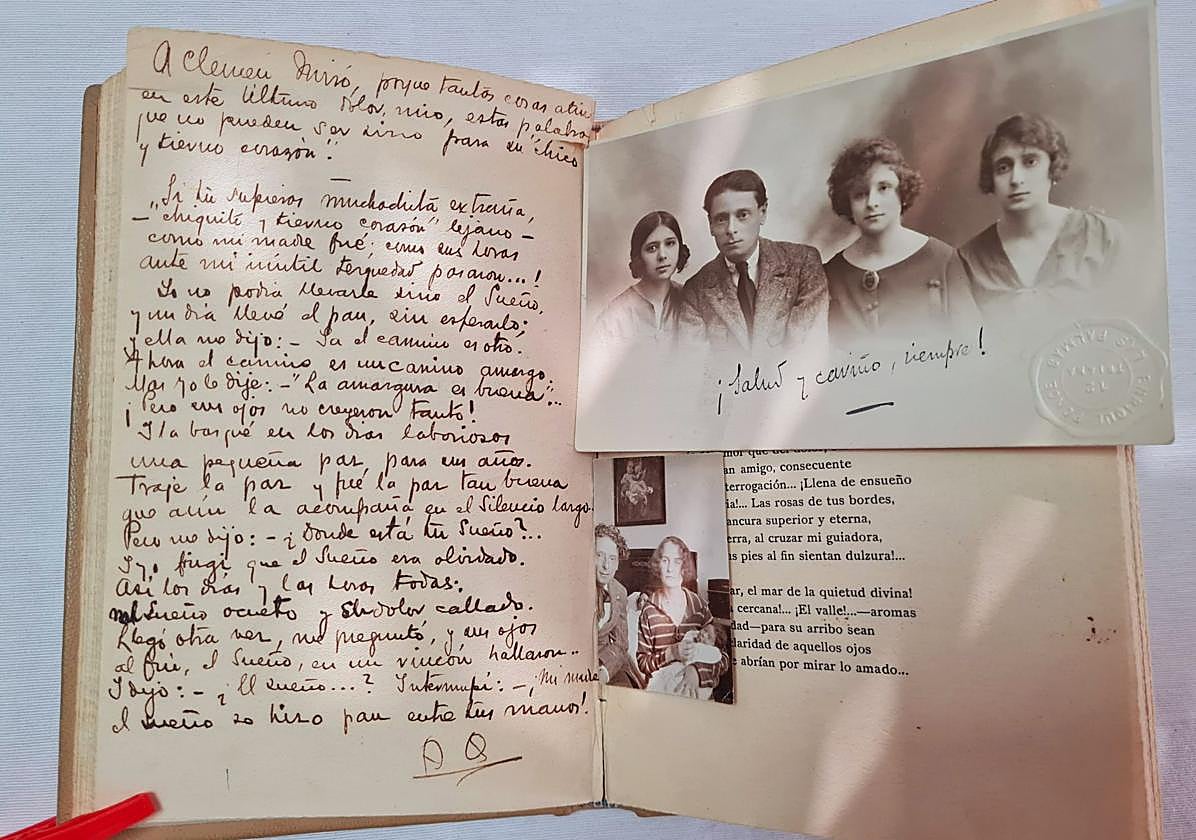 A Clemen Miró, porque tantas cosas atin
en este último dolor mío, estas palabras
que no pueden ser sino para su "chico
y tierno corazón".
—
"Si tú supieras muchachita extraña,
— chiquito y tierno corazón" lejano —
como mi madre fué; como sus horas
ante mi inútil terquedad pasaron...!
Yo no podía llevarle sino el Sueño,
y un día llevé el pan, sin esperarlo;
y ella me dijo: — Ya el camino es otro.
Ahora el camino es un camino amargo.
Mas yo le dije: — "La amargura es buena"...
¡Pero sus ojos no creyeron tanto!
Y la busqué en los días laboriosos
una pequeña paz, para sus años.
Traje la paz y fué la paz tan buena
que aún la acompaña en el Silencio largo.
Pero me dijo: — ¿Donde está tu Sueño?...
Y yo fingí que el Sueño era olvidado.
Así los días y las horas todas:
el Sueño oculto y el dolor callado.
Llegó otra vez, me preguntó, y sus ojos
al fin, el Sueño, en un rincón hallaron...
Y dijo: — ¿El sueño...? Interrumpí: — ¡Mi madre
el sueño se hizo pan entre tus manos!
A Q
¡Salud y cariño, siempre!
LAS PALMAS
mor que del
an amigo, consecuente
terrogación... ¡Llena de ensueño
ia!... Las rosas de tus bordes,
ancura superior y eterna,
erra, al cruzar mi guiadora,
s pies al fin sientan dulzura!...
ar, el mar de la quietud divina!
cercana!... ¡El valle!...—aromas
dad—para su arribo sean
laridad de aquellos ojos
e abrían por mirar lo amado...